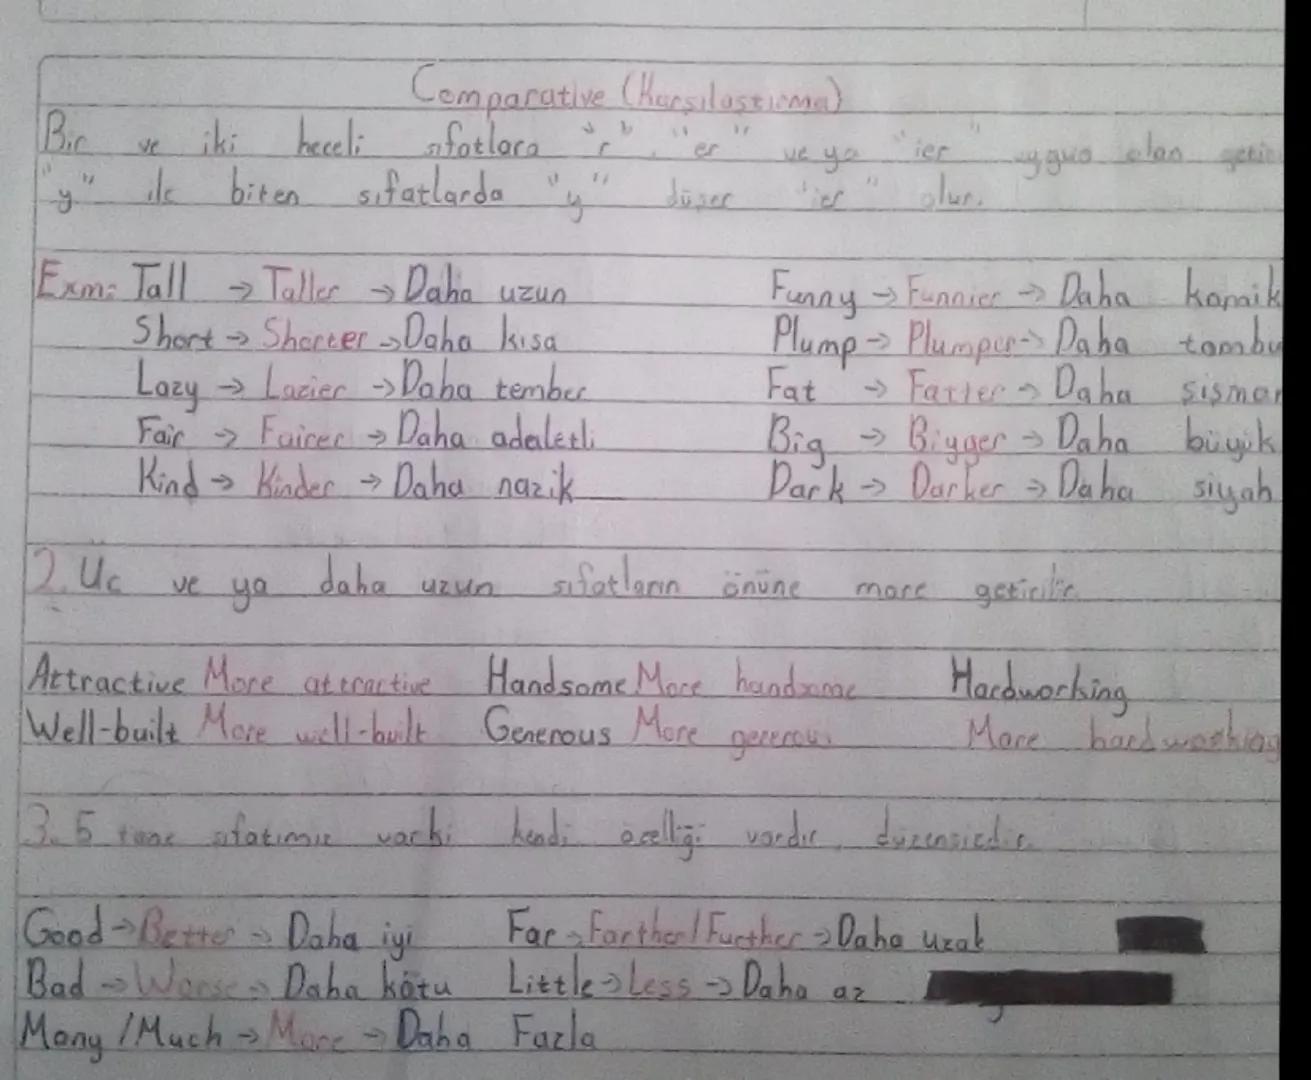 Comparative (Karşılaştırma)
Bir ve iki heceli sıfatlara "r", "er" ve ya "ier" uygun olan
"y" ile biten sıfatlarda "y" düşer "ier" olur.
Exm: Tall → Taller → Daha uzun Funny → Funnier → Daha komik
Short → Shorter → Daha kısa Plump → Plumper → Daha tombu
Lazy → Lazier → Daha tember Fat → Fatter → Daha sisman
Fair → Fairer → Daha adaletli Big → Bigger → Daha büyük
Kind → Kinder → Daha nazik Dark → Darker → Daha siyah
2. Üc ve ya daha uzun sıfatların önüne more getirilir.
Attractive More attractive Handsome More handsome Hardworking
Well-built More well-built Generous More generous More hardworking
3. 5 tane sıfatımız varki kendi özelliği vardır, düzensizdir.
Good → Better → Daha iyi Far → Farther/Further → Daha uzak
Bad → Worse → Daha kötu Little → Less → Daha az
Many / Much → More → Daha Fazla